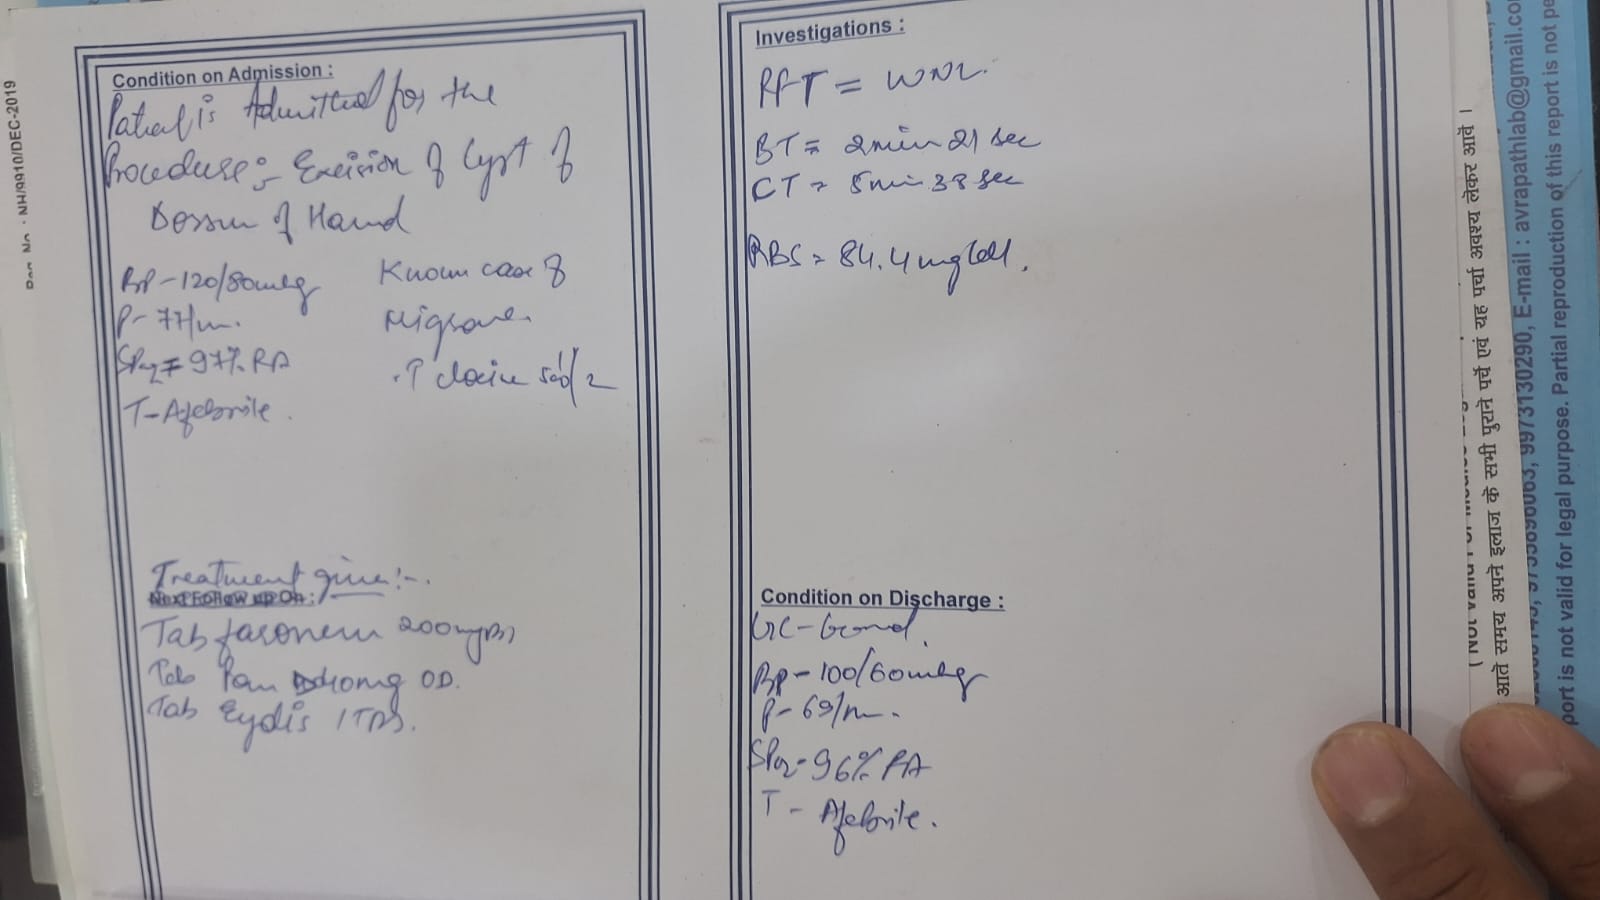 Reg. No. : NH/9910/DEC-2019
Condition on Admission :
Patient is Admitted for the
Procedure :- Excision of Cyst of
Dorsum of Hand
BP - 120/80mmHg
P - 77/m.
SPO2 = 97% RA
T - Afebrile.
Known case of
Migraine.
Treatment given :-
Next Follow up On :
Tab 200mg BD
Tab Pan 40mg OD.
Tab 1 TDS.
Investigations :
RFT = WNL.
BT = 2min 21 sec
CT = 5min 38 sec
RBS = 84.4 mg/dl.
Condition on Discharge :
GC - Good.
BP - 100/60mmHg
P - 69/m.
SPO2 - 96% RA
T - Afebrile.
आते समय अपने इलाज के सभी पुराने पर्चे एवं यह पर्चा अवश्य लेकर आवें ।
9973130290, E-mail : avrapathlab@gmail.com
port is not valid for legal purpose. Partial reproduction of this report is not pe